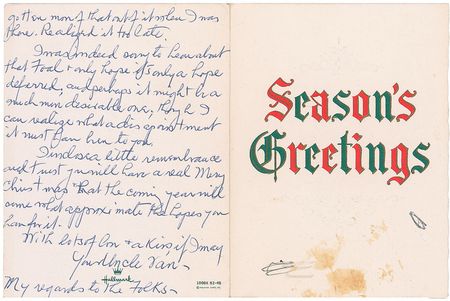 gotten more of that out of it when I was
there. Realized it too late.
I was indeed sorry to hear about
that Foal & only hope it's only a hope
deferred, and perhaps it might be a
much more desirable one, though I
can realize what a disappointment
it must have been to you.
I inclose a little remembrance
and trust you will have a real Merry
Christmas & that the coming year will
somewhat approximate the hopes you
have for it.
With lots of love & a Kiss if I may
Your Uncle Van -
My regards to the Folks -
Hallmark
Season's
Greetings